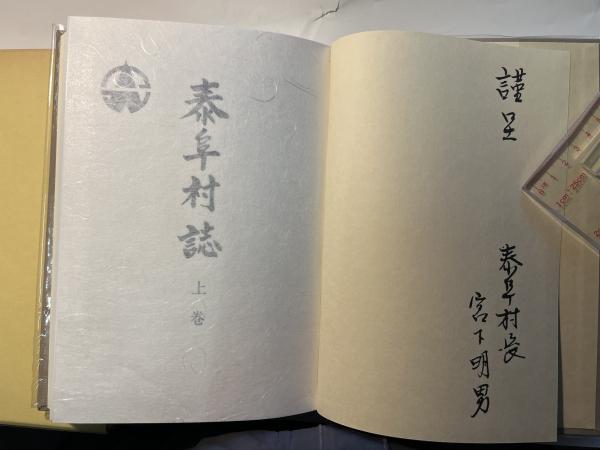 謹呈
泰阜村長
宮下明男
泰阜村誌
上巻